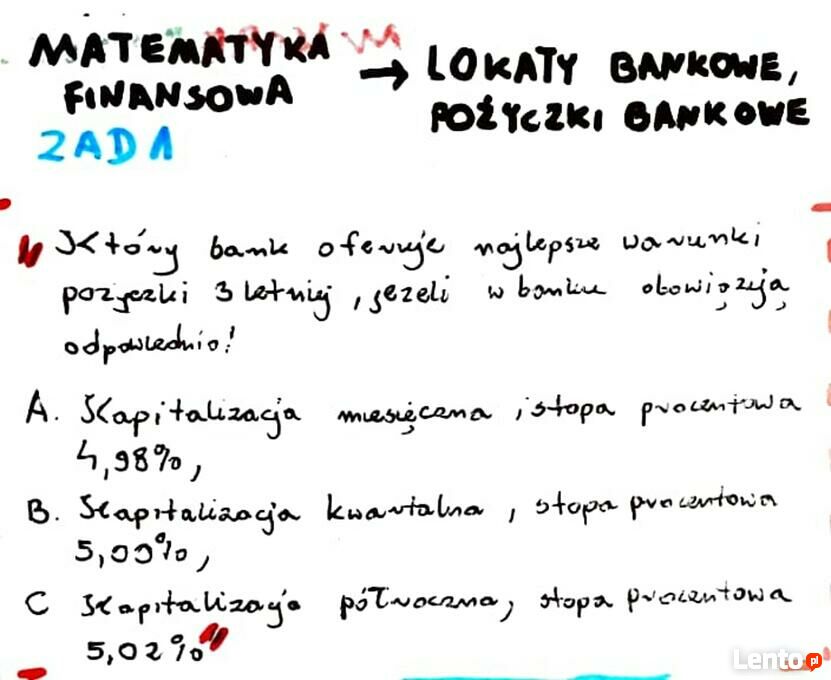 MATEMATYKA
FINANSOWA
→ LOKATY BANKOWE,
POŻYCZKI BANKOWE
ZAD 1
" Który bank oferuje najlepsze warunki
pożyczki 3 letniej, jeżeli w banku obowiązują
odpowiednio:
A. Kapitalizacja miesięczna, stopa procentowa
4,98%,
B. Kapitalizacja kwartalna, stopa procentowa
5,00%,
C Kapitalizacja półroczna, stopa procentowa
5,02% "
Lento.pl